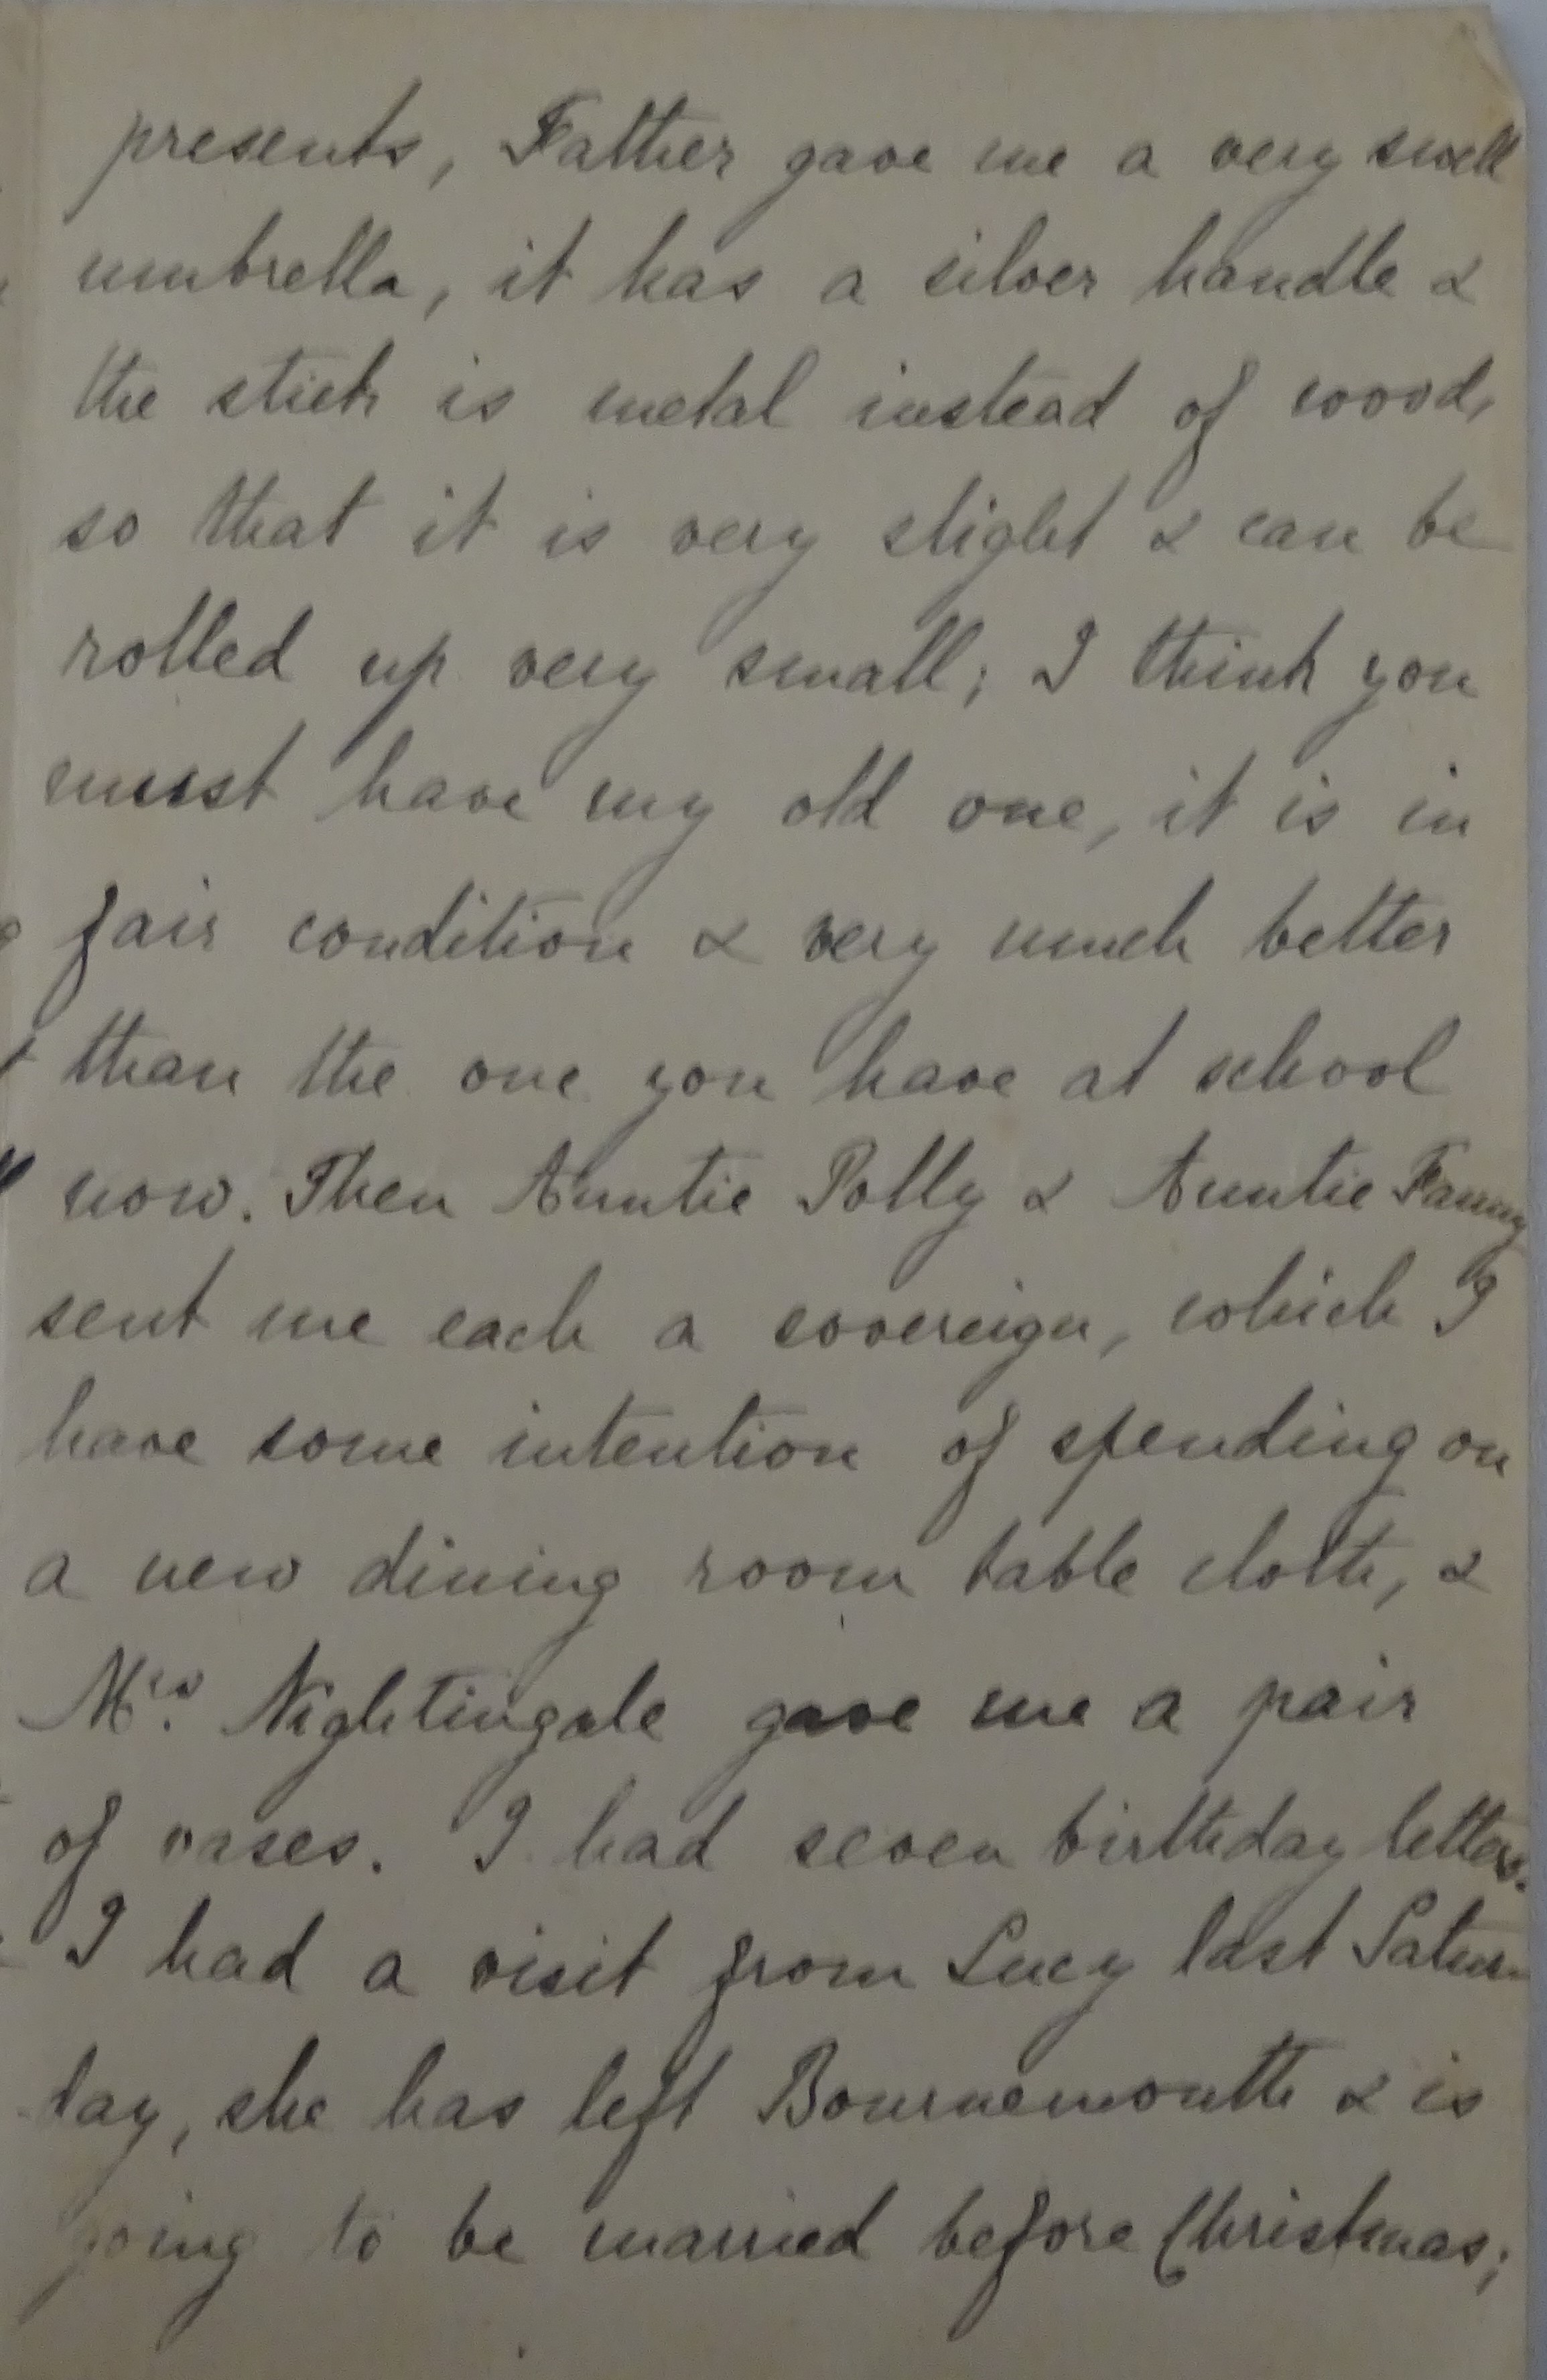 presents, Father gave me a very swell
umbrella, it has a silver handle &
the stick is metal instead of wood,
so that it is very slight & can be
rolled up very small; I think you
must have my old one, it is in
fair condition & very much better
than the one you have at school
now. Then Auntie Polly & Auntie Fanny
sent me each a sovereign, which I
have some intention of spending on
a new dining room table cloth, &
Mrs. Nightingale gave me a pair
of vases. I had seven birthday letters.
I had a visit from Lucy last Satur-
day, she has left Bournemouth & is
going to be married before Christmas;